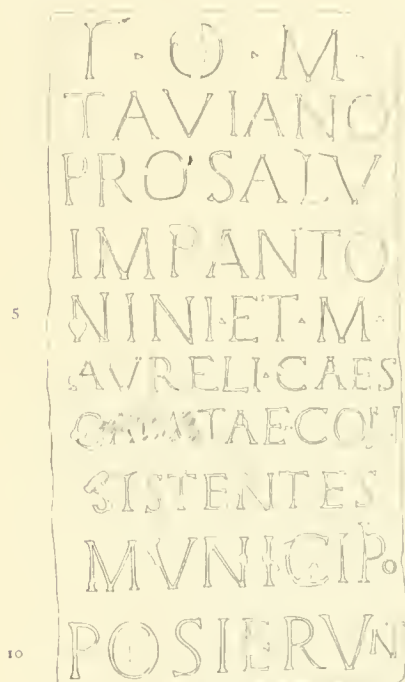 I · O · M ·
TAVIANO
PRO SALV
IMPANTO
NINI · ET · M ·
5
AVRELI · CAES
GALATAE CON
SISTENTES
MVNICIPO
POSIERVN
10